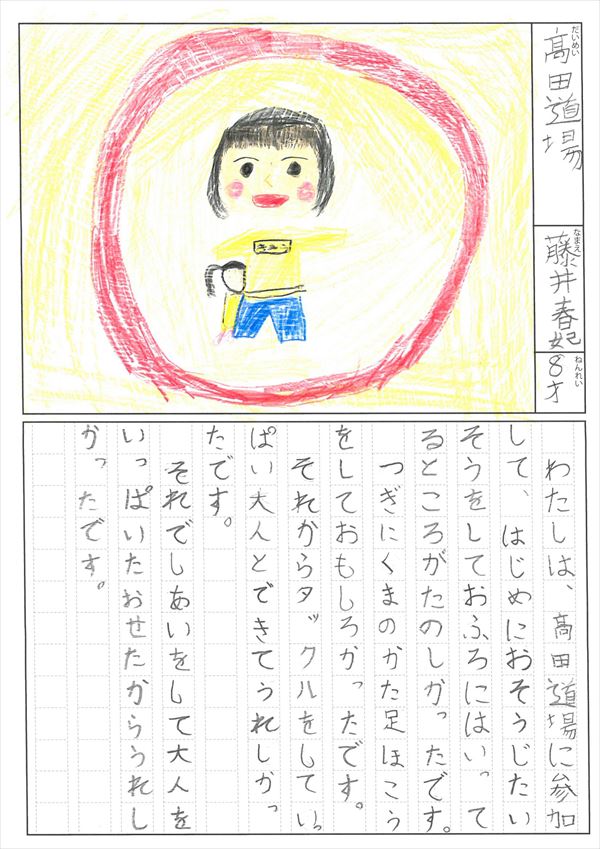 だいめい
髙田道場
なまえ
藤井春妃
ねんれい
8才
わたしは、髙田道場に参加
して、はじめにおそうじたい
そうをしておふろにはいって
るところがたのしかったです。
つぎにくまのかた足ほこう
をしておもしろかったです。
それからタックルをしていっ
ぱい大人とできてうれしかっ
たです。
それでしあいをして大人を
いっぱいたおせたからうれし
かったです。